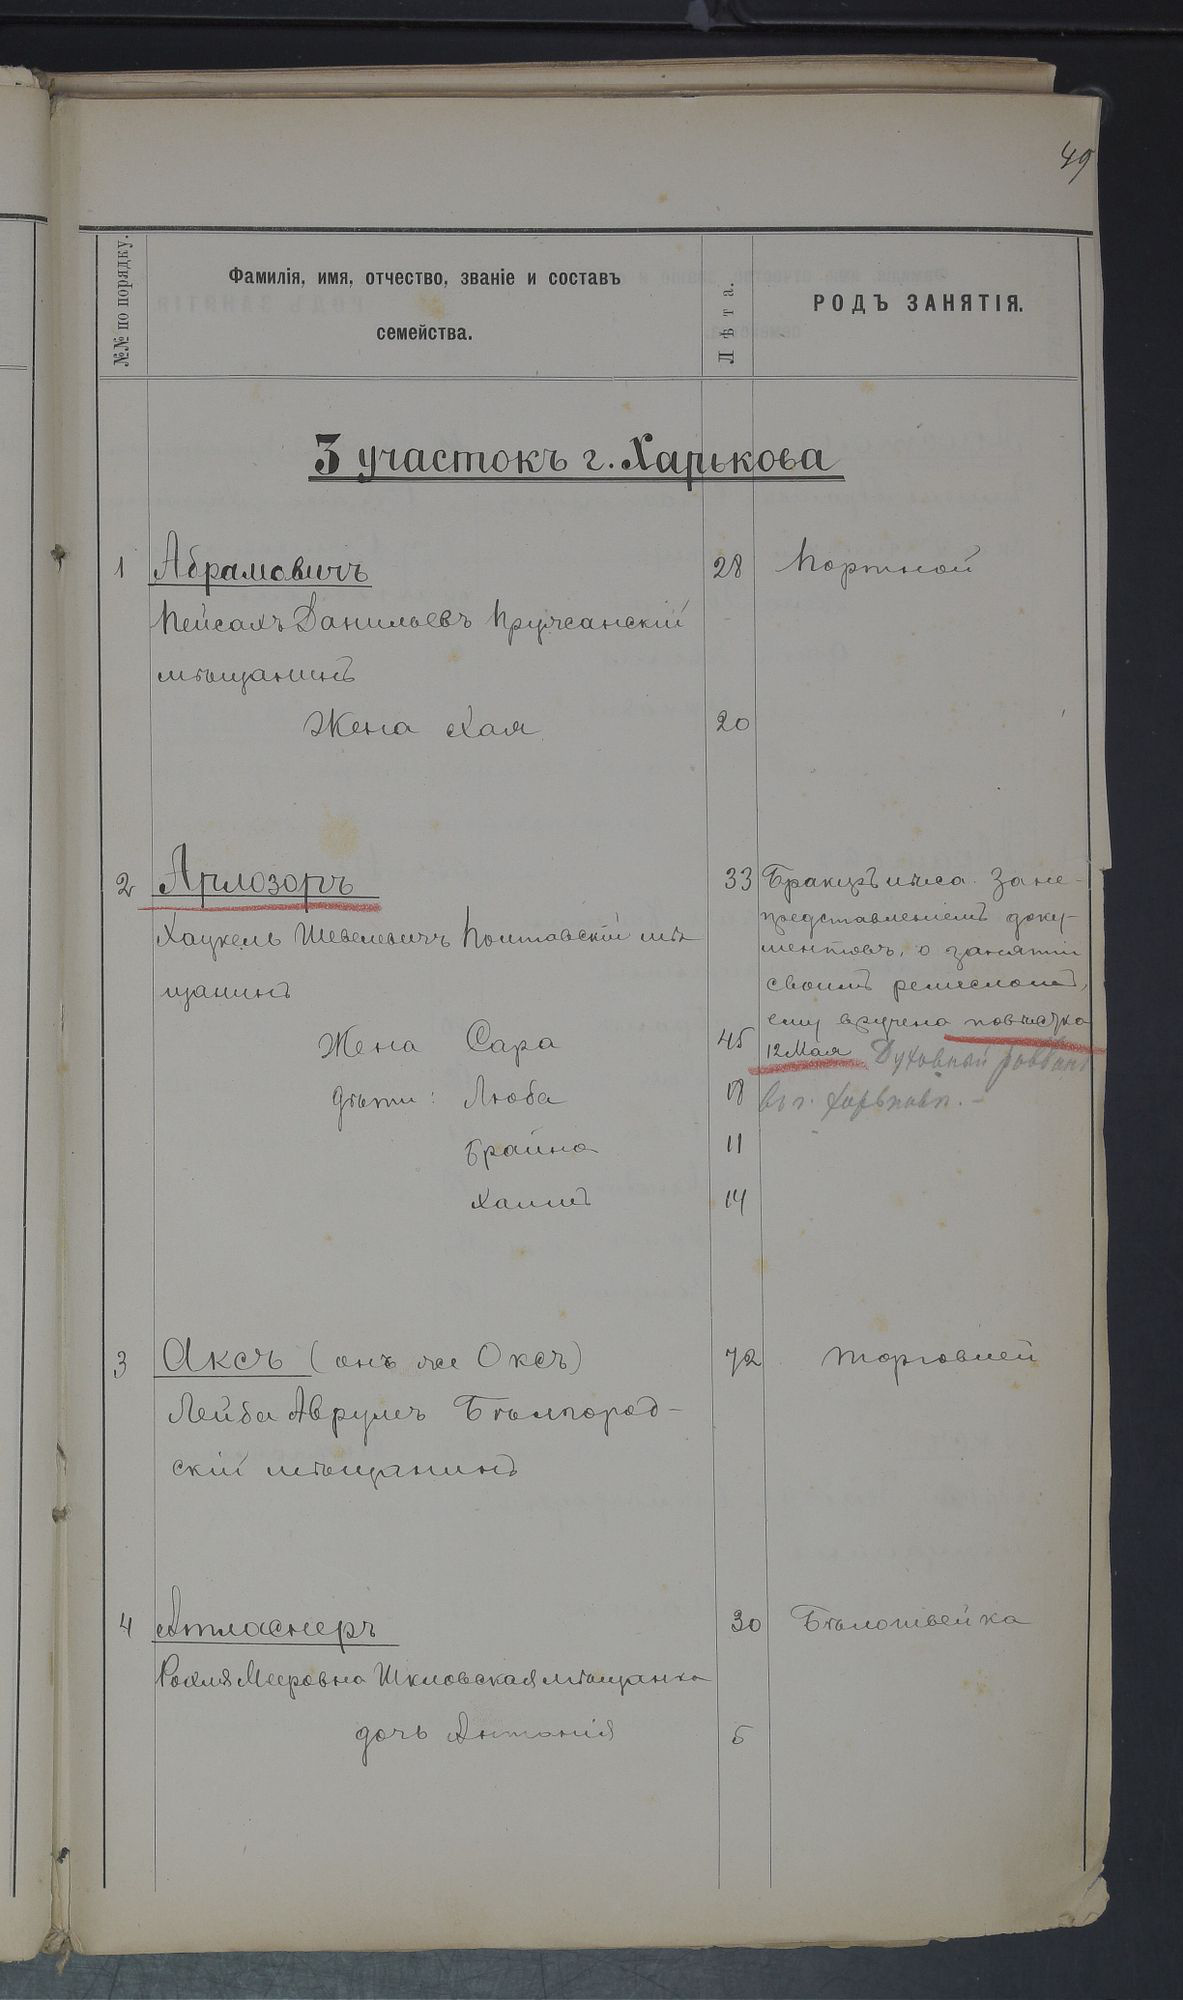 49
№№ по порядку.
Фамилія, имя, отчество, званіе и составъ
семейства.
Лѣта.
РОДЪ ЗАНЯТІЯ.
3 участокъ г. Харькова
1 Абрамовичъ 28 Портной
Пейсахъ Данильевъ Пружанскій
мѣщанинъ
Жена Хая 20
2 Арлозоръ 33 Бракеръ мяса. За не-
Хацкель Шевелевичъ Полтавскій мѣ
щанинъ
представленіемъ доку-
ментовъ, о занятіи
своимъ ремесломъ,
ему вручена повѣстка
12 Мая Духовный раввинъ
въ г. Харьковѣ. –
Жена Сара 45
дѣти: Люба 18
Брайна 11
Хаимъ 14
3 Аксъ (онъ же Оксъ) 72 торговлей
Лейба Аврумъ Бѣлгород-
скій мѣщанинъ
4 Атласнеръ 30 Бѣлошвейка
Рохля Мееровна Шкловская мѣщанка
дочь Антонія 5